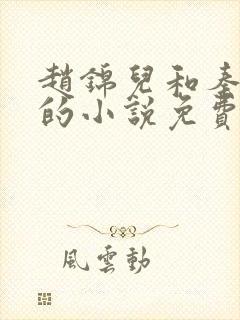 趙錦兒和秦
的小說免費
風雲動